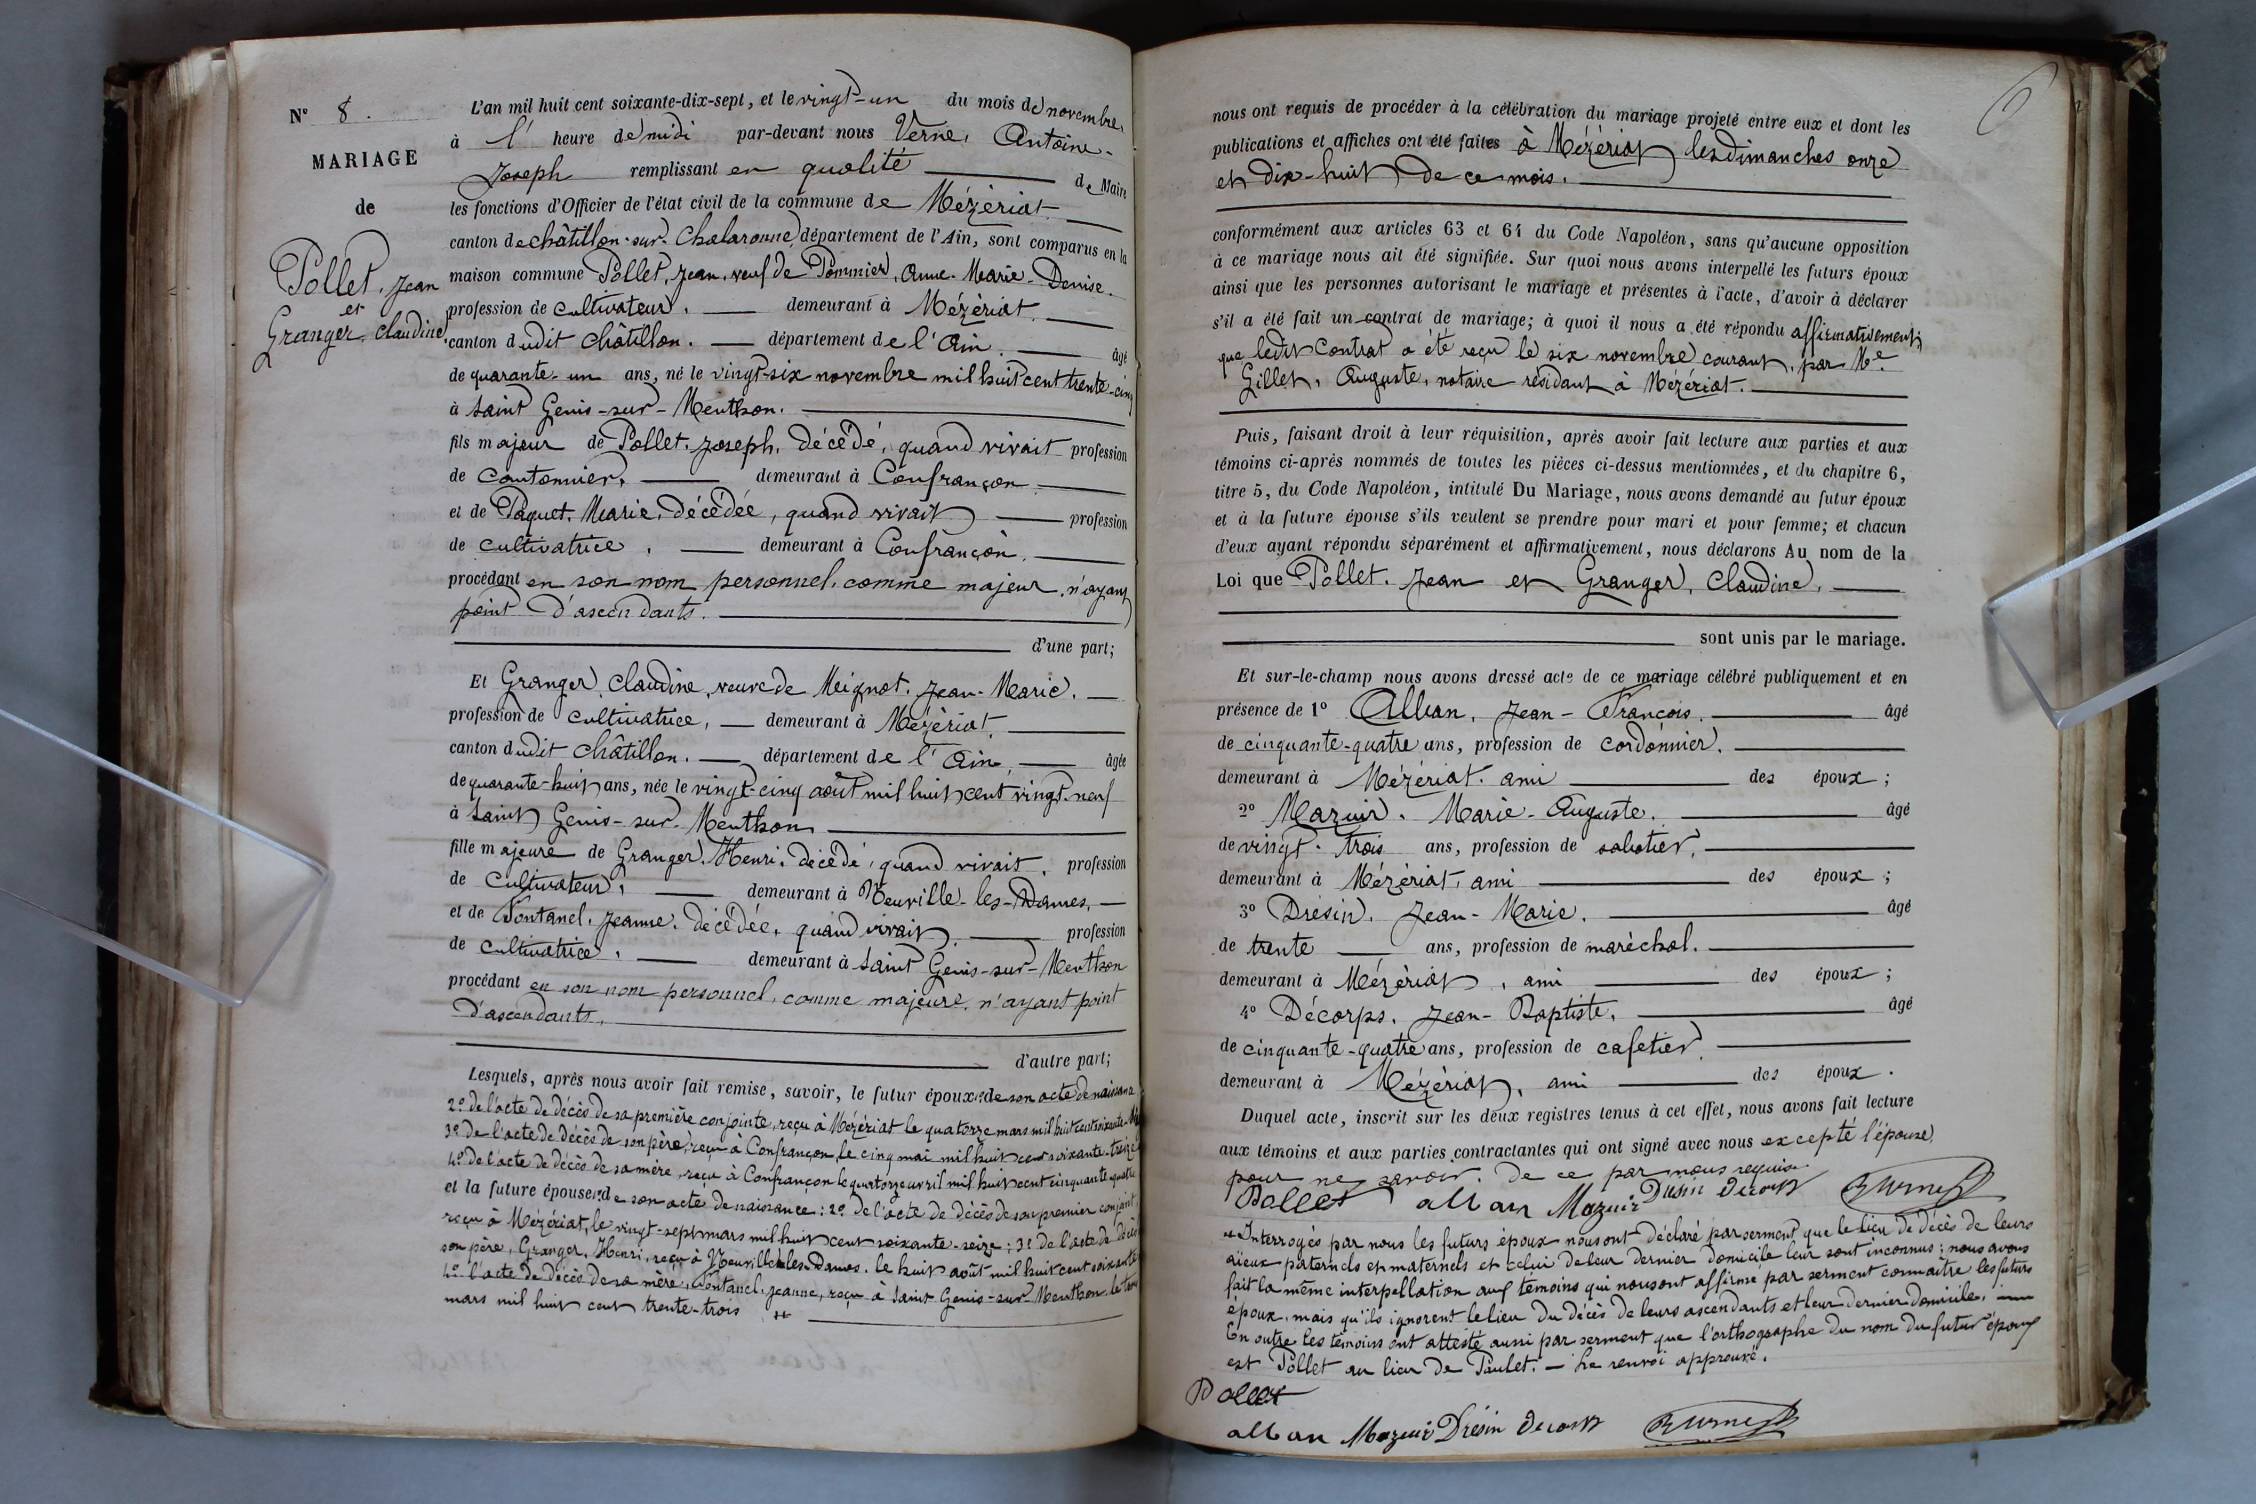 N° 8.
MARIAGE
de
Pollet, Jean
et
Granger, Claudine.
L'an mil huit cent soixante-dix-sept, et le vingt-un du mois de novembre,
à l' heure de midi par-devant nous Verne, Antoine-
Joseph remplissant en qualité de Maire
les fonctions d'Officier de l'état civil de la commune de Mézériat
canton de châtillon-sur-Chalaronne, département de l'Ain, sont comparus en la
maison commune Pollet, Jean, veuf de Pommier, Anne-Marie-Denise.
profession de cultivateur. demeurant à Mézériat.
canton dudit châtillon. département de l'Ain. âgé
de quarante-un ans, né le vingt-six novembre mil huit cent trente-cinq
à Saint Genis-sur-Menthon.
fils majeur de Pollet, Joseph, décédé, quand vivait profession
de cantonnier, demeurant à Confrançon
et de Paquet, Marie, décédée, quand vivait profession
de cultivatrice, demeurant à Confrançon.
procédant en son nom personnel, comme majeur, n'ayant
point d'ascendants.
d'une part;
Et Granger, Claudine, veuve de Meignat, Jean-Marie.
profession de cultivatrice, demeurant à Mézériat.
canton dudit châtillon. département de l'Ain, âgée
de quarante-huit ans, née le vingt-cinq août mil huit cent vingt-neuf
à Saint Genis-sur-Menthon
fille majeure de Granger, Henri, décédé, quand vivait, profession
de cultivateur, demeurant à Neuville-les-Dames,
et de Fontanel, Jeanne, décédée, quand vivait, profession
de cultivatrice, demeurant à Saint Genis-sur-Menthon
procédant en son nom personnel, comme majeure, n'ayant point
d'ascendants.
d'autre part;
Lesquels, après nous avoir fait remise, savoir, le futur époux: de son acte de naissance
2° de l'acte de décès de sa première conjointe, reçu à Mézériat le quatorze mars mil huit cent soixante
3° de l'acte de décès de son père, reçu à Confrançon le cinq mai mil huit cent soixante-treize
4° de l'acte de décès de sa mère, reçu à Confrançon le quatorze avril mil huit cent cinquante quatre
et la future épouse: de son acte de naissance: 2° de l'acte de décès de son premier conjoint,
reçu à Mézériat, le vingt-sept mars mil huit cent soixante-seize; 3° de l'acte de décès
son père, Granger, Henri, reçu à Neuville-les-Dames, le huit août mil huit cent soixante
4° l'acte de décès de sa mère, Fontanel, Jeanne, reçu à Saint-Genis-sur-Menthon le
mars mil huit cent trente-trois
nous ont requis de procéder à la célébration du mariage projeté entre eux et dont les
publications et affiches ont été faites à Mézériat les dimanches onze
et dix-huit de ce mois.
conformément aux articles 63 et 64 du Code Napoléon, sans qu'aucune opposition
à ce mariage nous ait été signifiée. Sur quoi nous avons interpellé les futurs époux
ainsi que les personnes autorisant le mariage et présentes à l'acte, d'avoir à déclarer
s'il a été fait un contrat de mariage; à quoi il nous a été répondu affirmativement;
que ledit Contrat a été reçu le six novembre courant, par Me.
Gillet, Auguste, notaire résidant à Mézériat.
Puis, faisant droit à leur réquisition, après avoir fait lecture aux parties et aux
témoins ci-après nommés de toutes les pièces ci-dessus mentionnées, et du chapitre 6,
titre 5, du Code Napoléon, intitulé Du Mariage, nous avons demandé au futur époux
et à la future épouse s'ils veulent se prendre pour mari et pour femme; et chacun
d'eux ayant répondu séparément et affirmativement, nous déclarons Au nom de la
Loi que Pollet, Jean et Granger, Claudine,
sont unis par le mariage.
Et sur-le-champ nous avons dressé acte de ce mariage célébré publiquement et en
présence de 1° Alban, Jean-François. âgé
de cinquante-quatre ans, profession de cordonnier.
demeurant à Mézériat. ami des époux;
2° Mazuir. Marie-Auguste. âgé
de vingt-trois ans, profession de sabotier.
demeurant à Mézériat, ami des époux;
3° Drésin. Jean-Marie. âgé
de trente ans, profession de maréchal.
demeurant à Mézériat, ami des époux;
4° Décorps. Jean-Baptiste. âgé
de cinquante-quatre ans, profession de cafetier.
demeurant à Mézériat, ami des époux.
Duquel acte, inscrit sur les deux registres tenus à cet effet, nous avons fait lecture
aux témoins et aux parties contractantes qui ont signé avec nous excepté l'épouse,
pour ne savoir. de ce par nous requis.
Pollet alban Mazuir Drésin Decorps
Interrogés par nous les futurs époux nous ont déclaré par serment que le lieu de décès de leurs
aïeux paternels et maternels et celui de leur dernier domicile leur sont inconnus; nous avons
fait la même interpellation aux témoins qui nous ont affirmé par serment connaître les futurs
époux, mais qu'ils ignorent le lieu du décès de leurs ascendants et leur dernier domicile.
En outre les témoins ont attesté aussi par serment que l'orthographe du nom du futur époux
est Pollet au lieu de Paulet. — Le renvoi approuvé.
Pollet
alban Mazuir Drésin Decorps